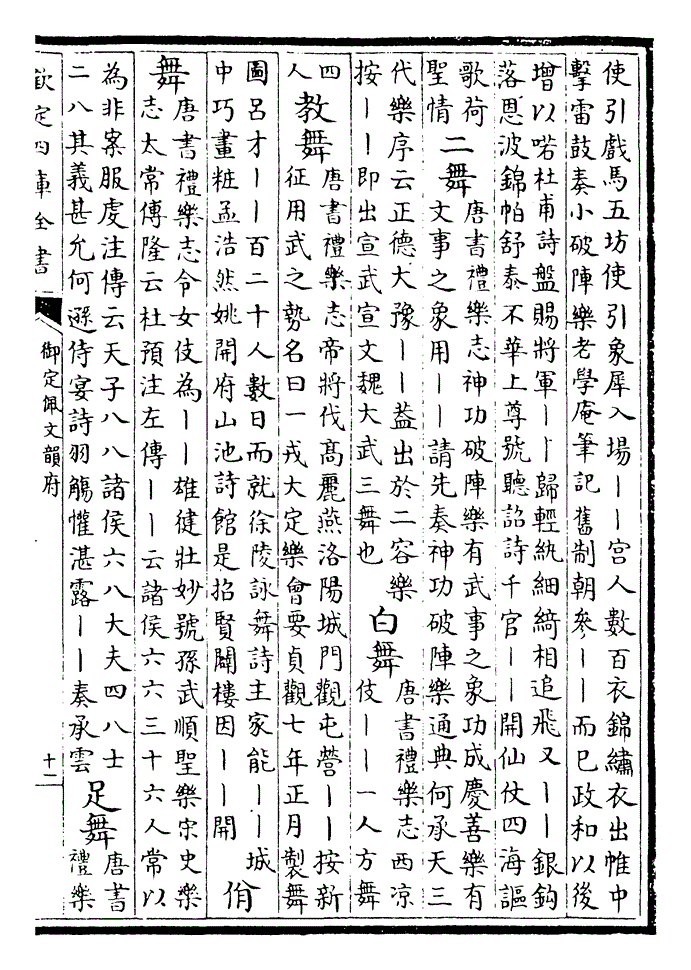 使引戲馬五坊使引象犀入場丨丨宫人數百衣錦繡衣出帷中
擊雷鼓奏小破陣樂老學庵筆記舊制朝參丨丨而已政和以後
增以喏杜甫詩盤賜將軍丨丨歸輕紈細綺相追飛又丨丨銀鈎
落恩波錦帕舒泰不華上尊號聽詔詩千官丨丨開仙仗四海謳
歌荷
聖情
二舞
唐書禮樂志神功破陣樂有武事之象功成慶善樂有
文事之象用丨丨請先奏神功破陣樂通典何承天三
代樂序云正德大豫丨丨葢出於二容樂
按丨丨即出宣武宣文魏大武三舞也
白舞
唐書禮樂志西凉
伎丨丨一人方舞
四
人
教舞
唐書禮樂志帝將伐髙麗燕洛陽城門觀屯營丨丨按新
征用武之勢名曰一戎大定樂會要貞觀七年正月製舞
圖呂才丨丨百二十人數日而就徐陵詠舞詩主家能丨丨城
中巧畫粧孟浩然姚開府山池詩館是招賢闢樓因丨丨開
佾
舞
唐書禮樂志令女伎為丨丨雄健壯妙號孫武順聖樂宋史樂
志太常傅隆云杜預注左傳丨丨云諸侯六六三十六人常以
為非案服虔注傳云天子八八諸侯六八大夫四八士
二八其義甚允何遜侍宴詩羽觴懽湛露丨丨奏承雲
足舞
唐書
禮樂
欽定四庫全書
御定佩文韻府
十二